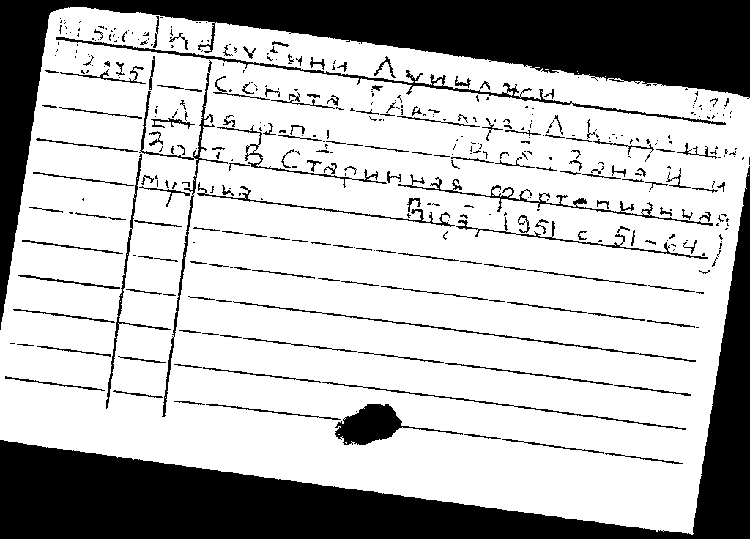 М 5602 Керубини, Луиджи.
3275 Соната. [Авт. муз.] Л. Керубини.
[Для ф.п.]
(В сб.: Зана, И. и
Зост, В Старинная фортепианная
музыка. Rīgā, 1951 с. 51-64.)